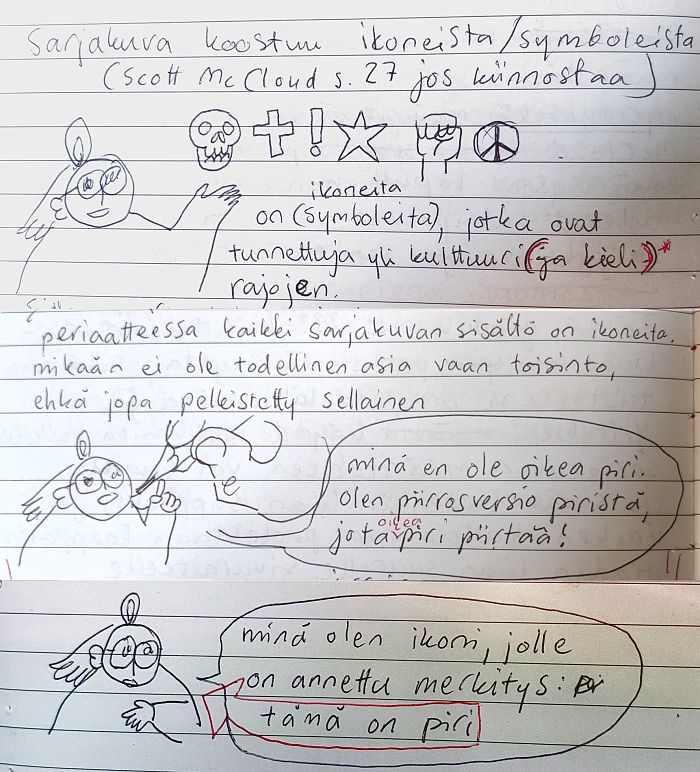 sarjakuva koostuu ikoneista/symboleista
(scott McCloud s. 27 jos kiinnostaa)
ikoneita
on (symboleita), jotka ovat
tunnettuja yli kulttuuri (ja kieli)*
rajojen.
periaatteessa kaikki sarjakuvan sisältö on ikoneita.
mikään ei ole todellinen asia vaan toisinto,
ehkä jopa pelkistetty sellainen
minä en ole oikea piri.
olen piirrosversio piristä,
oikea
jota piri piirtää!
minä olen ikoni, jolle
on annettu merkitys:
tämä on piri